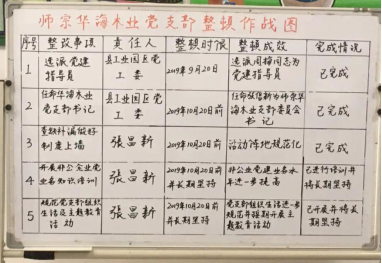 师宗华海木业党支部整顿作战图
序号 整改事项 责任人 整顿时限 整顿成效 完成情况
1 选派党建指导员 县工业园区党工委 2019年9月20日 选派同梅同志为党建指导员 已完成
2 任命华海木业党支部书记 县工业园区党工委 2019年10月20日前 任命张昌新为师宗华海木业党支部委员会书记 已完成
3 查缺补漏做好制度上墙 张昌新 2019年10月20日前 活动阵地规范化 已完成
4 开展非公企业党业务知识培训 张昌新 2019年10月20日前并长期坚持 非公党建业务水平进一步提高 已进行培训并将长期坚持
5 规范党支部组织生活及主题教育活动 张昌新 2019年10月20日前并长期坚持 党支部组织生活进一步规范并按期开展主题教育活动 已开展并将长期坚持